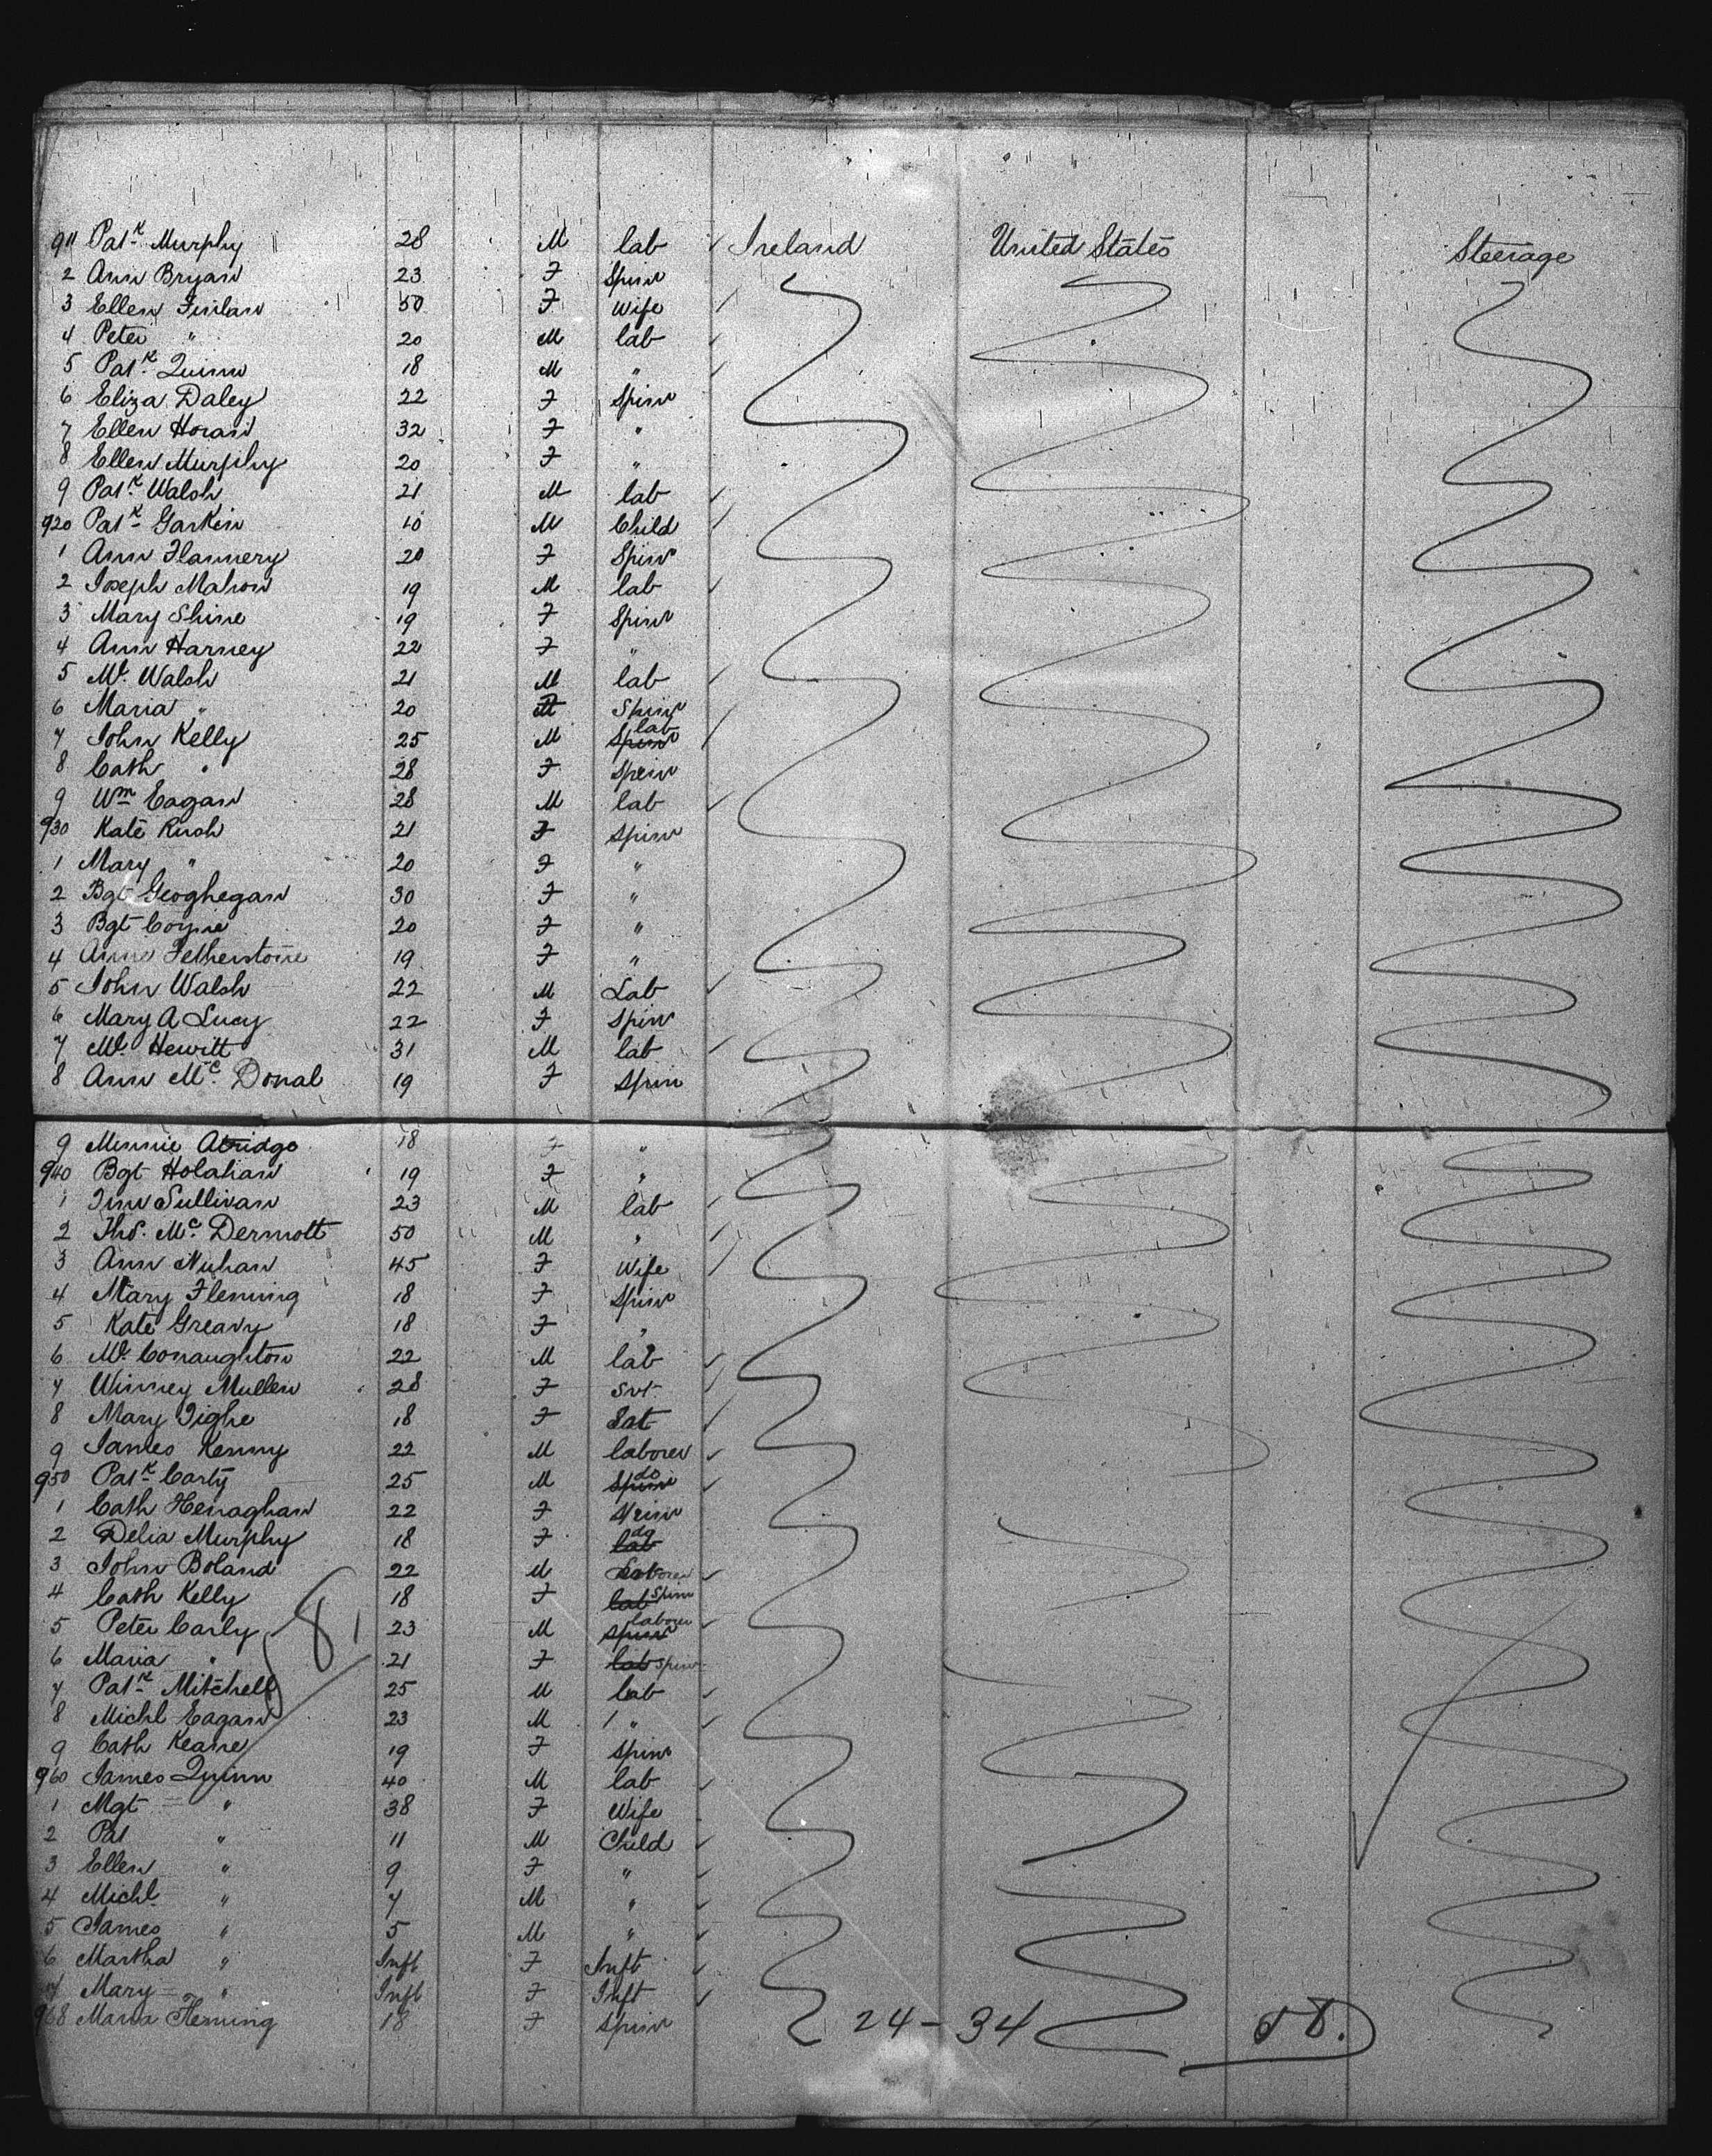 911 Patk. Murphy 28 M lab Ireland United States Steerage
2 Ann Bryan 23 F Spinr
3 Ellen Finlan 50 F Wife
4 Peter " 20 M lab
5 Patk. Quinn 18 M "
6 Eliza Daley 22 F Spinr
7 Ellen Horan 32 F "
8 Ellen Murphy 20 F "
9 Patk. Walsh 21 M lab
920 Patk. Garkin 10 M Child
1 Ann Flannery 20 F Spinr
2 Joseph Mahon 19 M lab
3 Mary Shine 19 F Spinr
4 Ann Harney 22 F "
5 Ml. Walsh 21 M lab
6 Maria " 20 Spinr
7 John Kelly 25 M Spinr lab
8 Cath " 28 F Spinr
9 Wm Eagan 28 M lab
930 Kate Rush 21 F Spinr
1 Mary " 20 F "
2 Bgt Geoghegan 30 F "
3 Bgt Coyne 20 F "
4 Anne Fetherstone 19 F "
5 John Walsh 22 M Lab
6 Mary A Lucy 22 F Spinr
7 Ml. Hewitt 31 M lab
8 Ann Mc. Donal 19 F Spin
9 Minnie Atridge 18 F "
940 Bgt Holahan 19 F "
1 Tim Sullivan 23 M lab
2 Thos. Mc. Dermott 50 M "
3 Ann Nuhan 45 F Wife
4 Mary Fleming 18 F Spinr
5 Kate Greavy 18 F "
6 Ml. Conaughton 22 M lab
7 Winney Mullen 28 F Svt.
8 Mary Tighe 18 F
9 James Kenny 22 M laborer
950 Patk. Carty 25 M Spinr do
1 Cath Henaghan 22 F Spinr
2 Delia Murphy 18 F lab do
3 John Boland 22 M Laborer
4 Cath Kelly 18 F lab Spinr
5 Peter Carly 23 M Spinr laborer
6 Maria " 21 F lab Spinr
7 Patk. Mitchell 25 M lab
8 Michl Eagan 23 M "
9 Cath Keane 19 F Spinr
960 James Quinn 40 M lab
1 Mgt " 38 F Wife
2 Pat " 11 M Child
3 Ellen " 9 F "
4 Michl. " 7 M "
5 James " 5 M "
6 Martha " Inft F Inft
7 Mary " Inft F Inft
968 Maria Fleming 18 F Spinr
24 - 34 58.
81